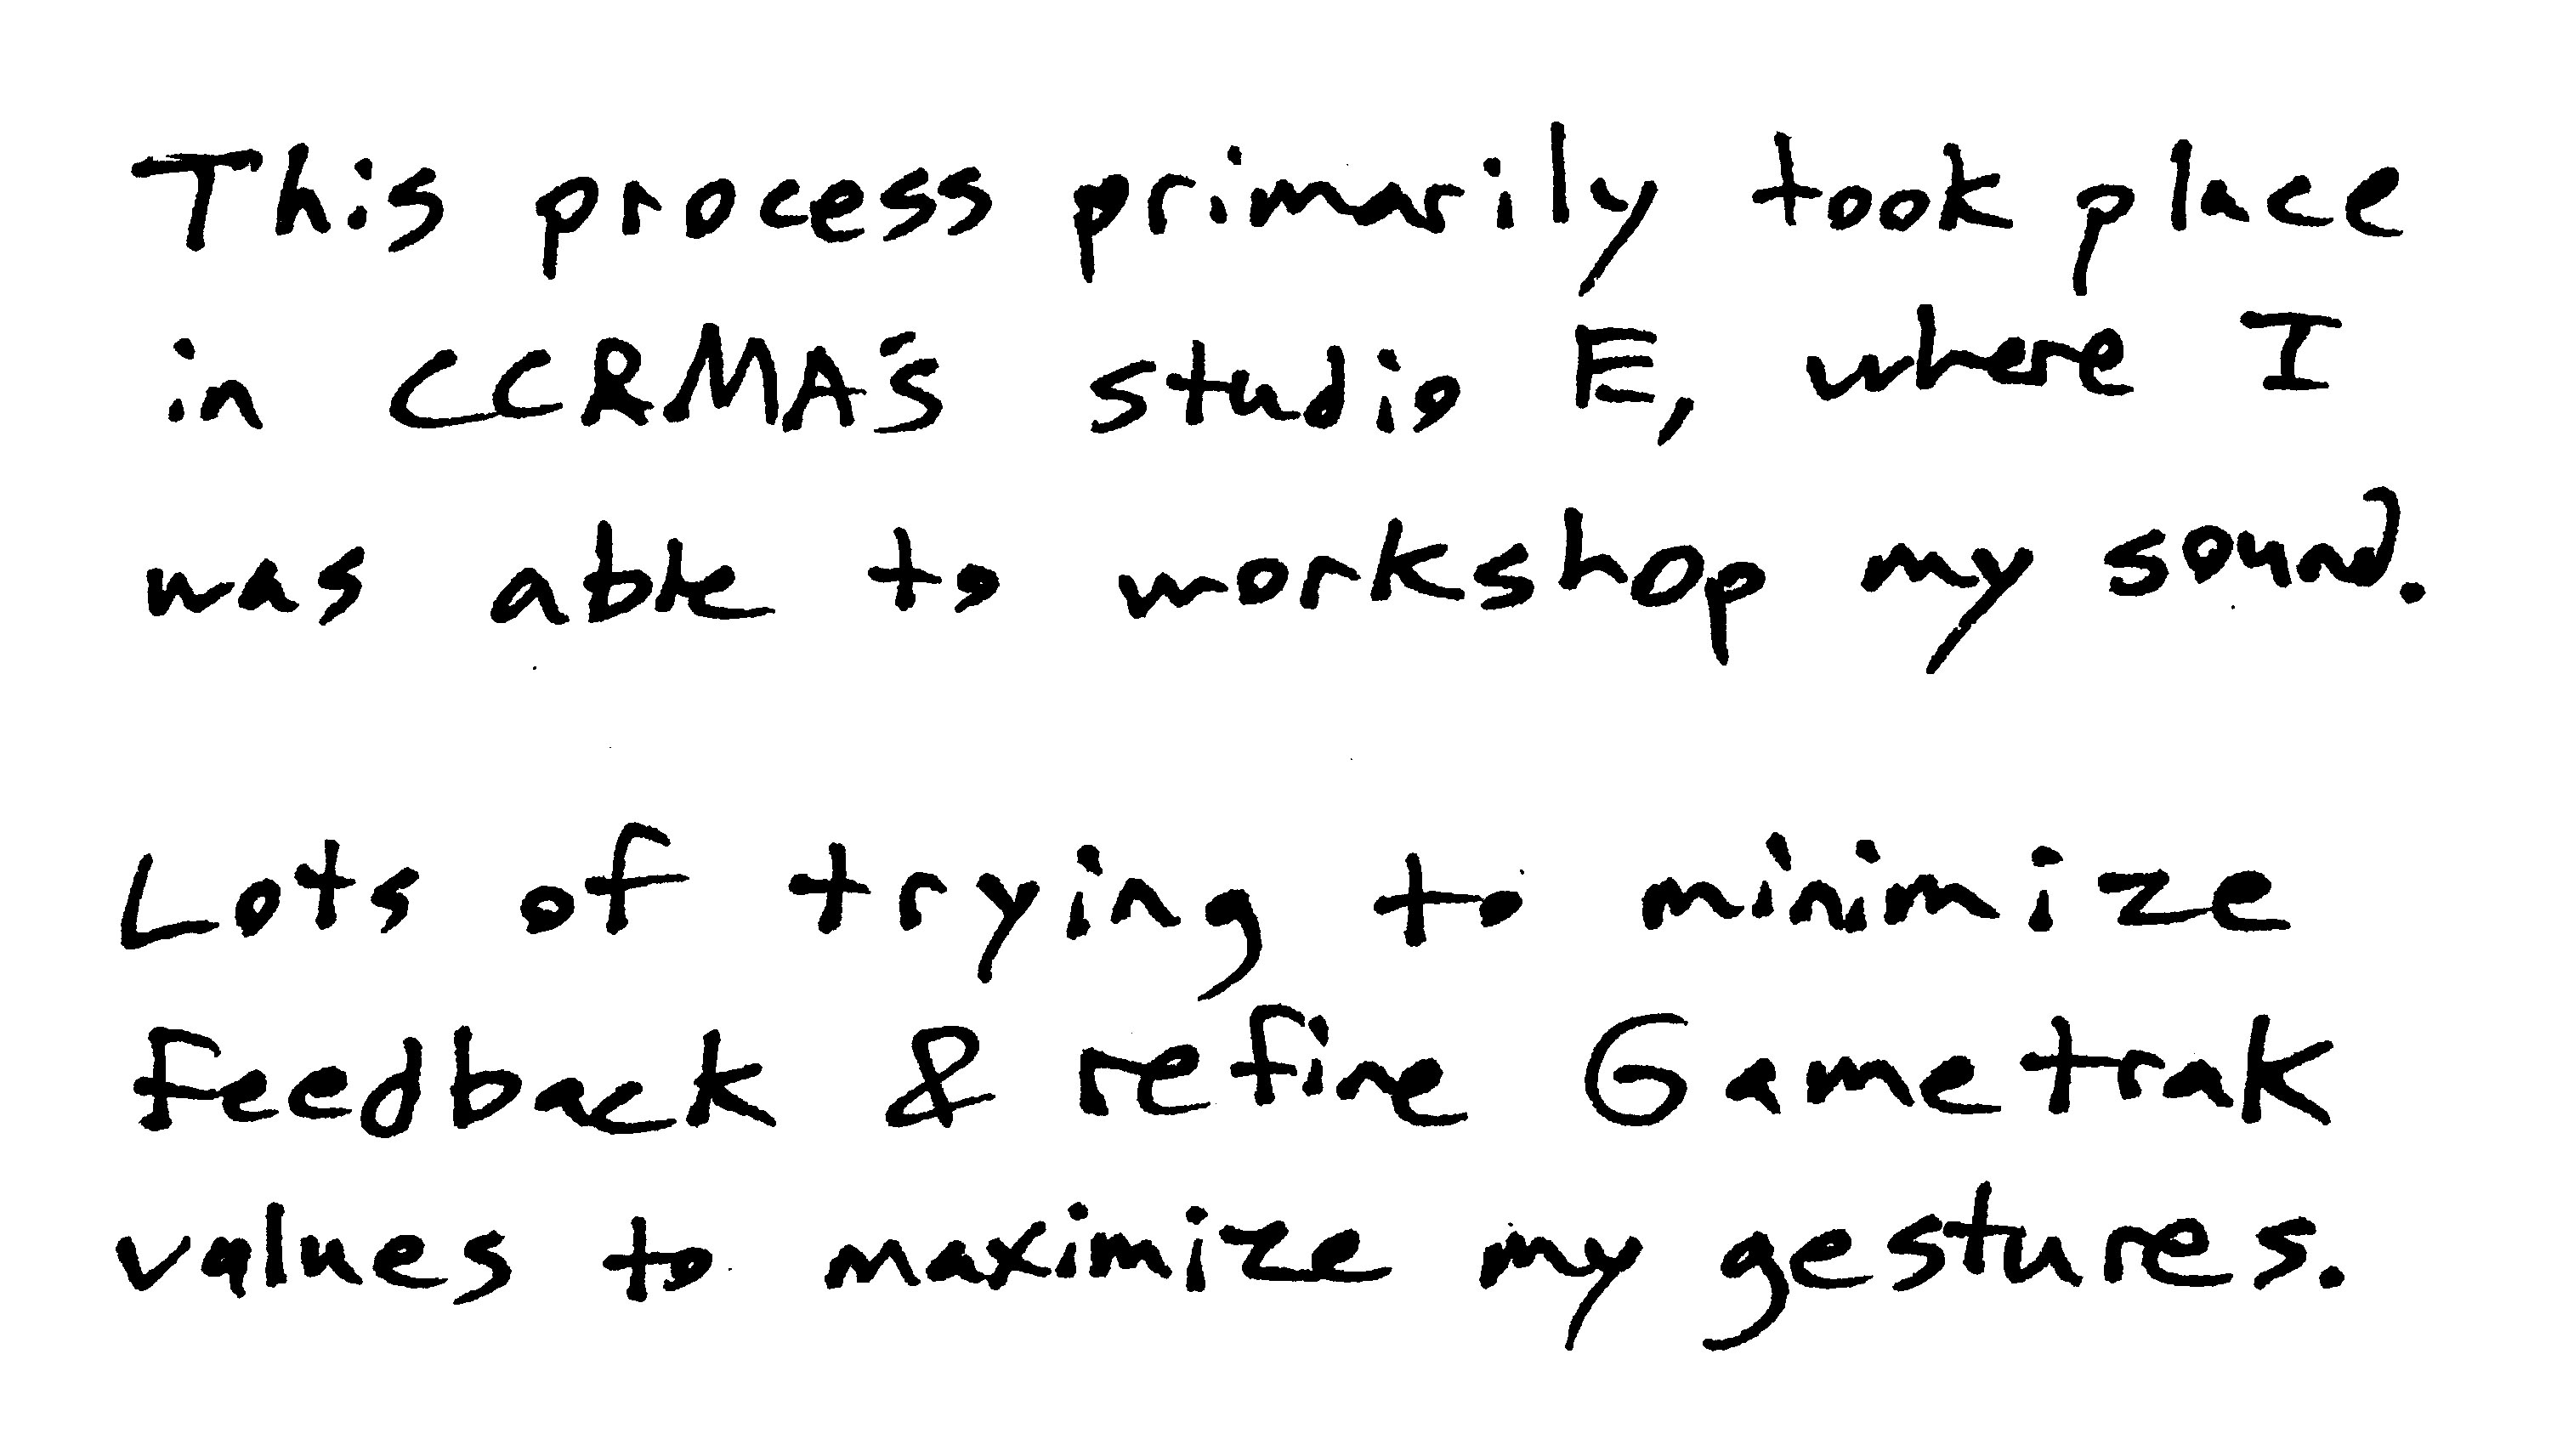 This process primarily took place
in CCRMA's studio E, where I
was able to workshop my sound.
Lots of trying to minimize
feedback & refine Gametrak
values to maximize my gestures.